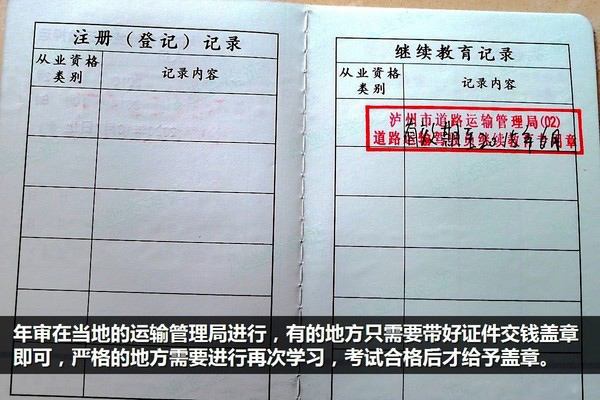 注册（登记）记录
从业资格
类别
记录内容
继续教育记录
从业资格
类别
记录内容
泸州市道路运输管理局(02)
道路运输驾驶员继续教育专用章
有效期至2015年6月
年审在当地的运输管理局进行，有的地方只需要带好证件交钱盖章
即可，严格的地方需要进行再次学习，考试合格后才给予盖章。